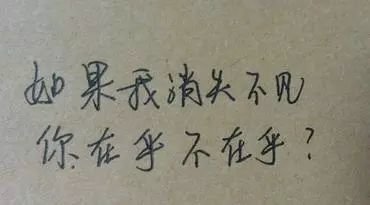 如果我消失不见
你在乎不在乎?